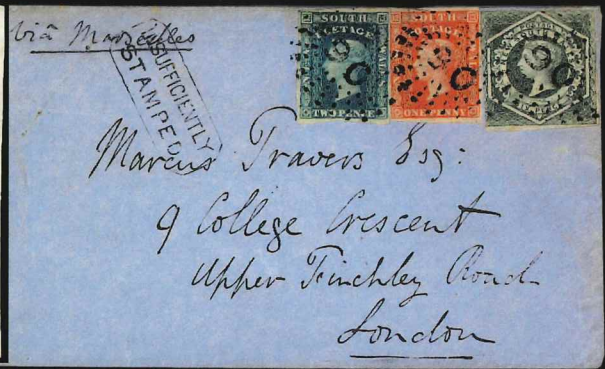 Viâ Marseilles
INSUFFICIENTLY
STAMPED
SOUTH
POSTAGE
WALES
TWO PENCE
SOUTH
POSTAGE
WALES
ONE PENNY
POSTAGE
Marcus Travers Esq:
9 College Crescent
Upper Finchley Road
London